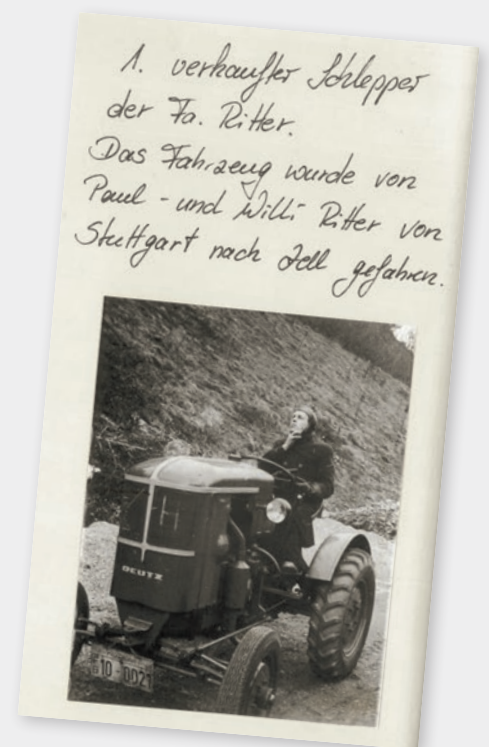 1. verkaufter Schlepper
der Fa. Ritter.
Das Fahrzeug wurde von
Paul - und Willi Ritter von
Stuttgart nach Zell gefahren.
DEUTZ
10-0021